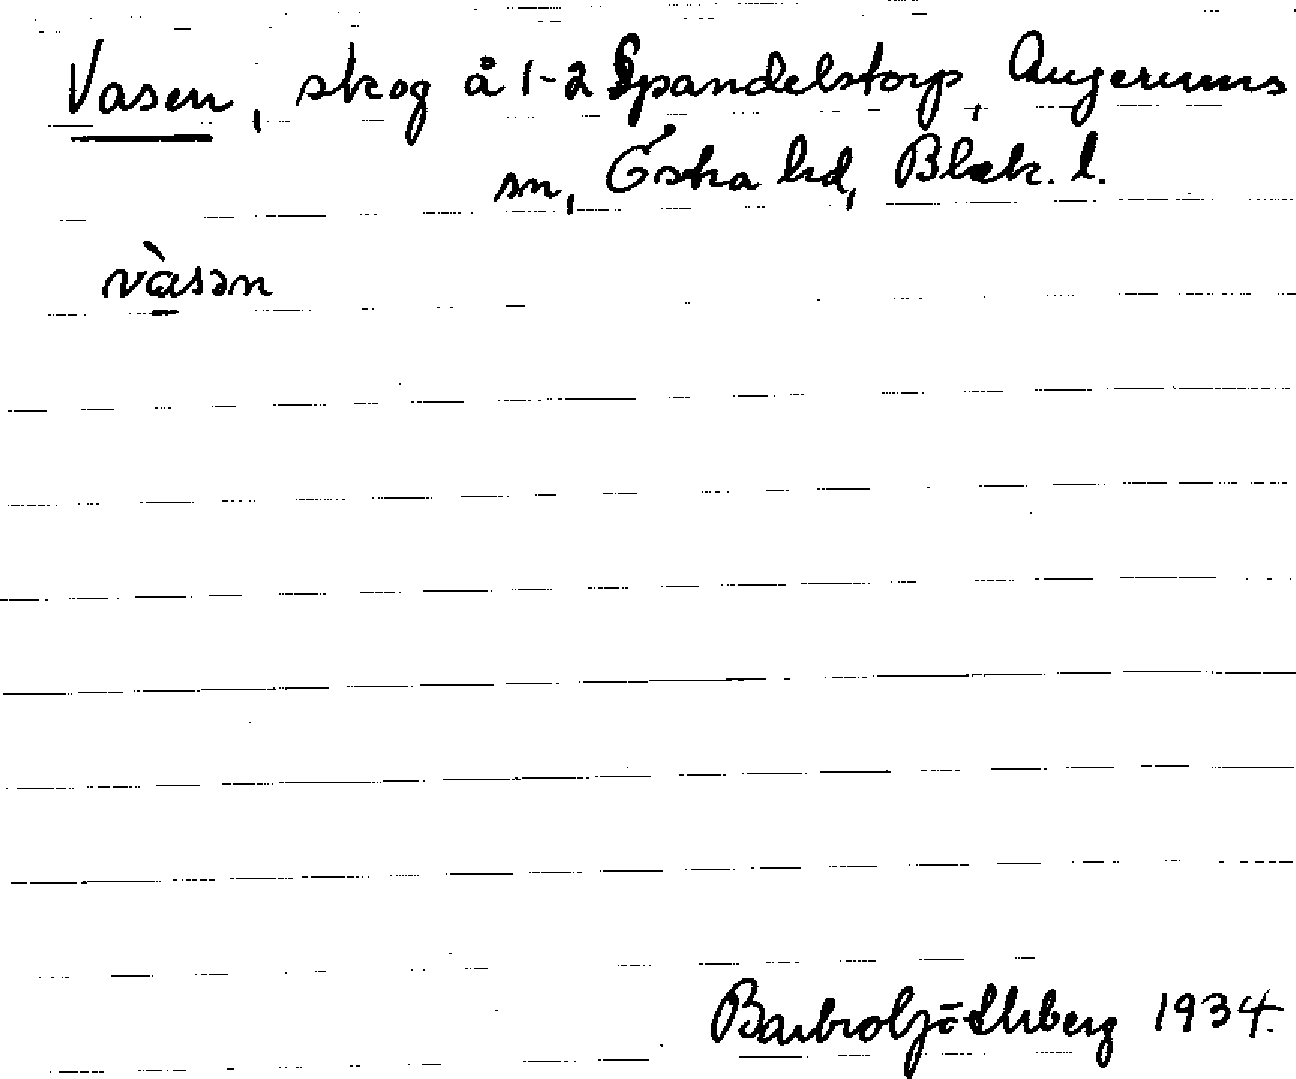 Vasen, skog å 1-2 Spandelstorp, Augerums
sn, Östra hd, Blek. l.
vàsən
Barbro 1934.